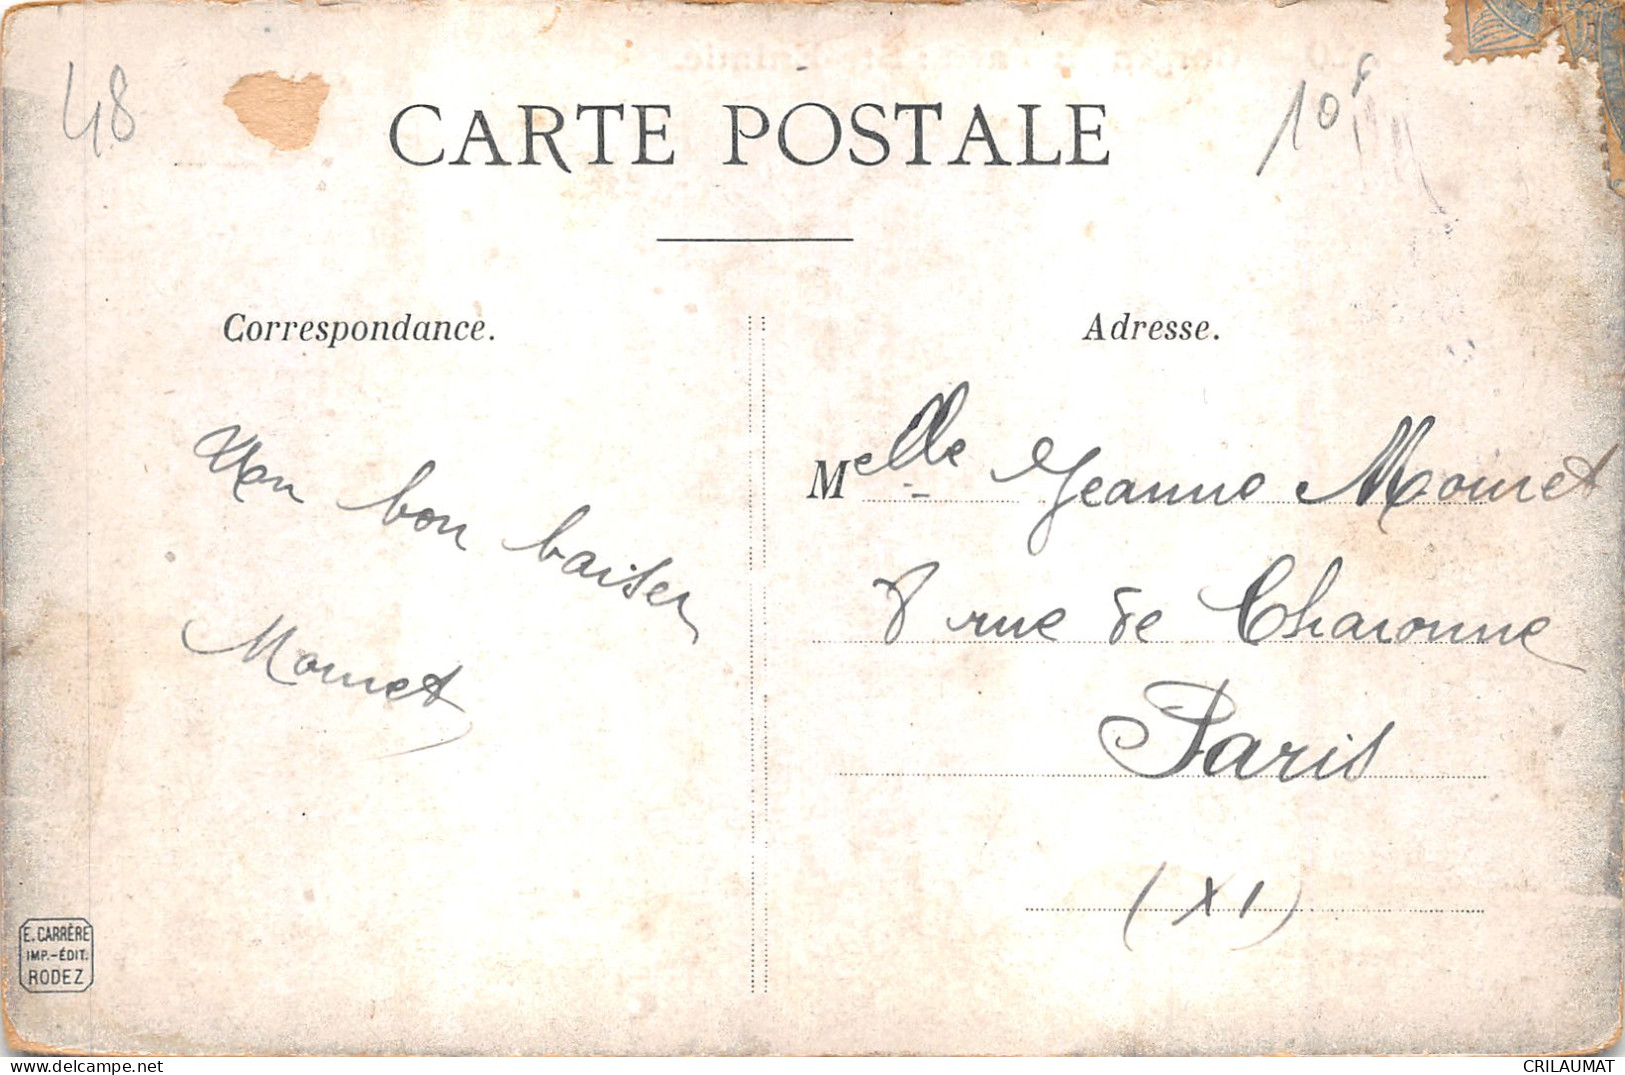 48
10F
CARTE POSTALE
Correspondance.
Adresse.
Mon bon baiser
Moinet
Melle Jeanne Moinet
8 rue de Charonne
Paris
(XI)
E. CARRÈRE
IMP.-ÉDIT.
RODEZ
www.delcampe.net
CRILAUMAT